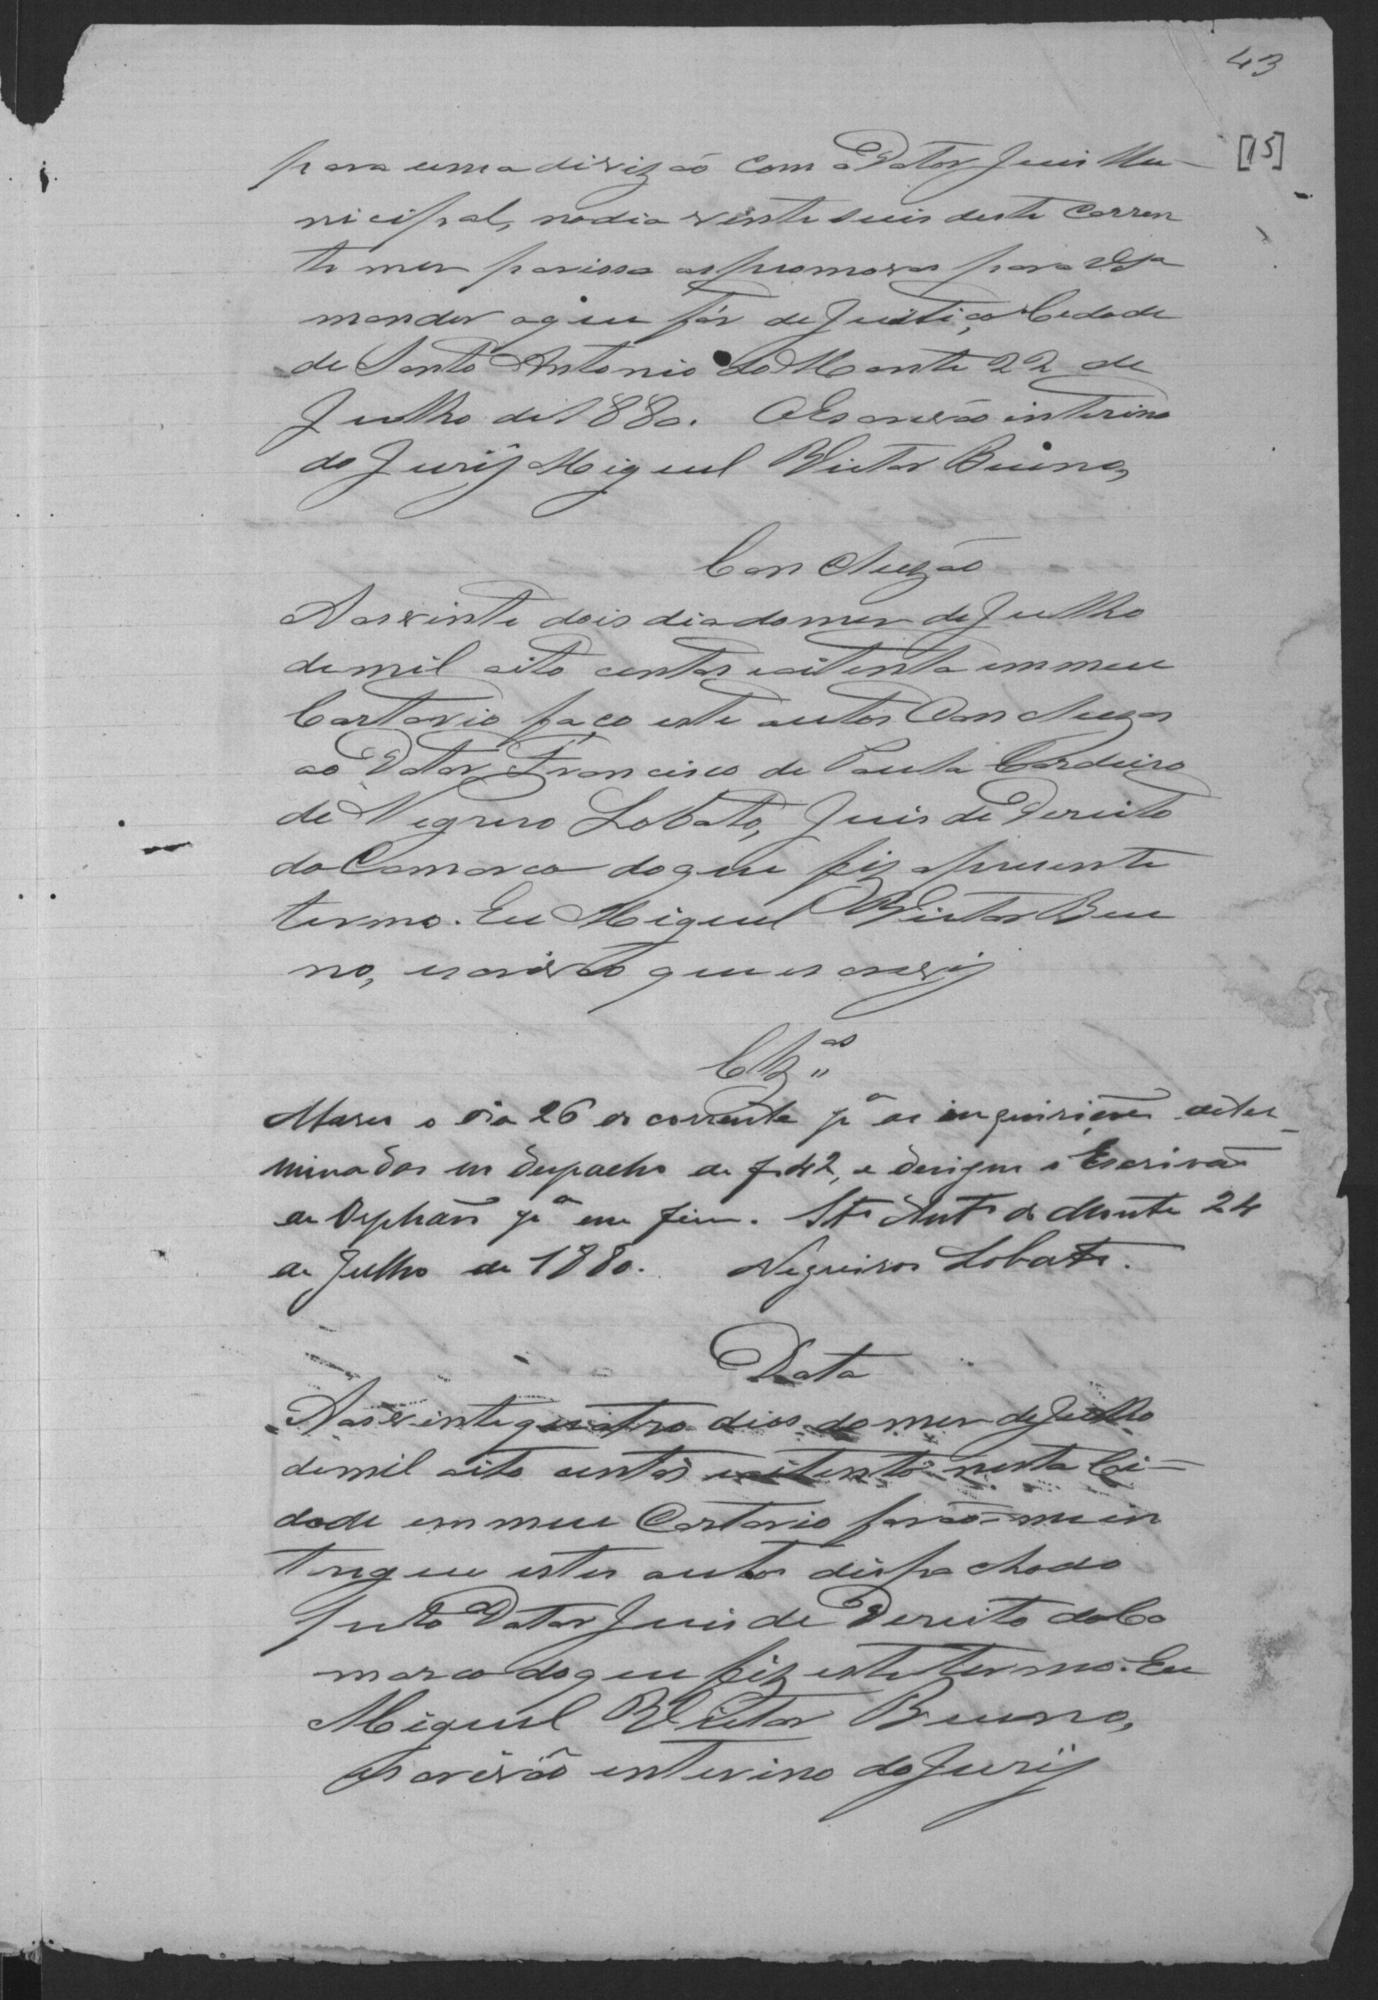 43
[15]
para uma divizão com o Dotor Juis Mu-
nicipal, no dia vinte seis deste corren
te mes por isso as promovas para Vsa
mandar o que for de Justiça, Cedade
de Santo Antonio do Monte 22 de
Julho de 1880. O Escrivão interino
do Jury Miguel Victor Bueno,
Concluzão
Aos vinte dois dia do mes de Julho
de mil oito centos e oitenta em meu
Cartorio faço este autos Concluzos
ao Dotor Francisco de Paula Cordeiro
de Negrero Lobato, Juis de Dereito
da Comarca do que fiz o presente
termo. Eu Miguel Victor Bue
no, escrivão que escrevy
Clzos
Marco o dia 26 do corrente pa as inquirições deter-
minadas em despacho de f 42, e designo o Escrivão
de Orphãos pa esse fim. Sto Anto do Monte 24
de Julho de 1880. Negreiros Lobato.
Data
Aos vinte quatro dias do mes de Julho
de mil oito centos e oitenta nesta Ci-
dade em meu Cartorio forão-me in
tregue estes autos despachado
pelo Dotor Juis de Dereito da Co
marca do que fiz este termo. Eu
Miguel Victor Bueno,
escrivão enterino do Jury